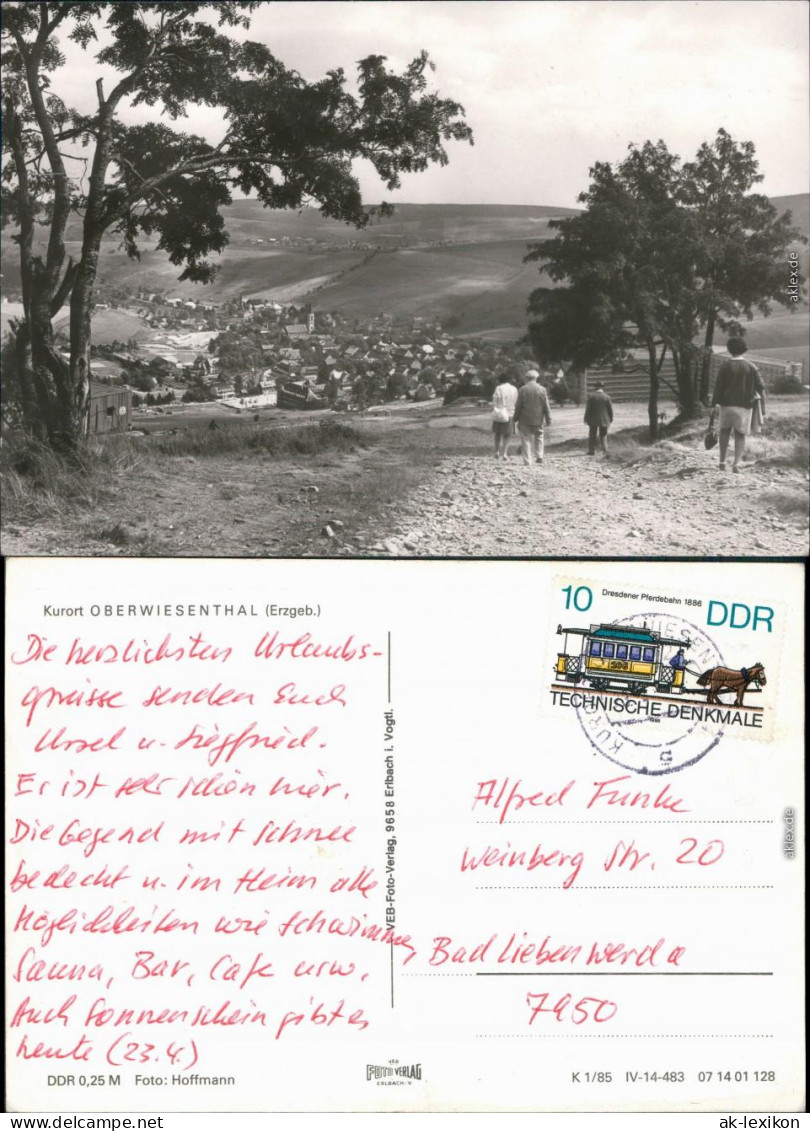 aklex.de
Kurort OBERWIESENTHAL (Erzgeb.)
Die herzlichsten Urlaubs-
grüsse senden Euch
Ursel u. Siegfried.
Er ist sehr schön hier.
Die Gegend mit Schnee
bedeckt u. im Heim alle
Möglichkeiten wie Schwimmen,
Sauna, Bar, Cafe usw.
Auch Sonnenschein gibt es
heute (23.4.)
DDR 0,25 M Foto: Hoffmann
VEB-Foto-Verlag, 9658 Erlbach i. Vogtl.
FOTO VERLAG
ERLBACH-V.
10 Dresdener Pferdebahn 1886 DDR
TECHNISCHE DENKMALE
Alfred Funke
Weinberg Str. 20
Bad Liebenwerda
7950
K 1/85 IV-14-483 07 14 01 128
aklex.de
ak-lexikon